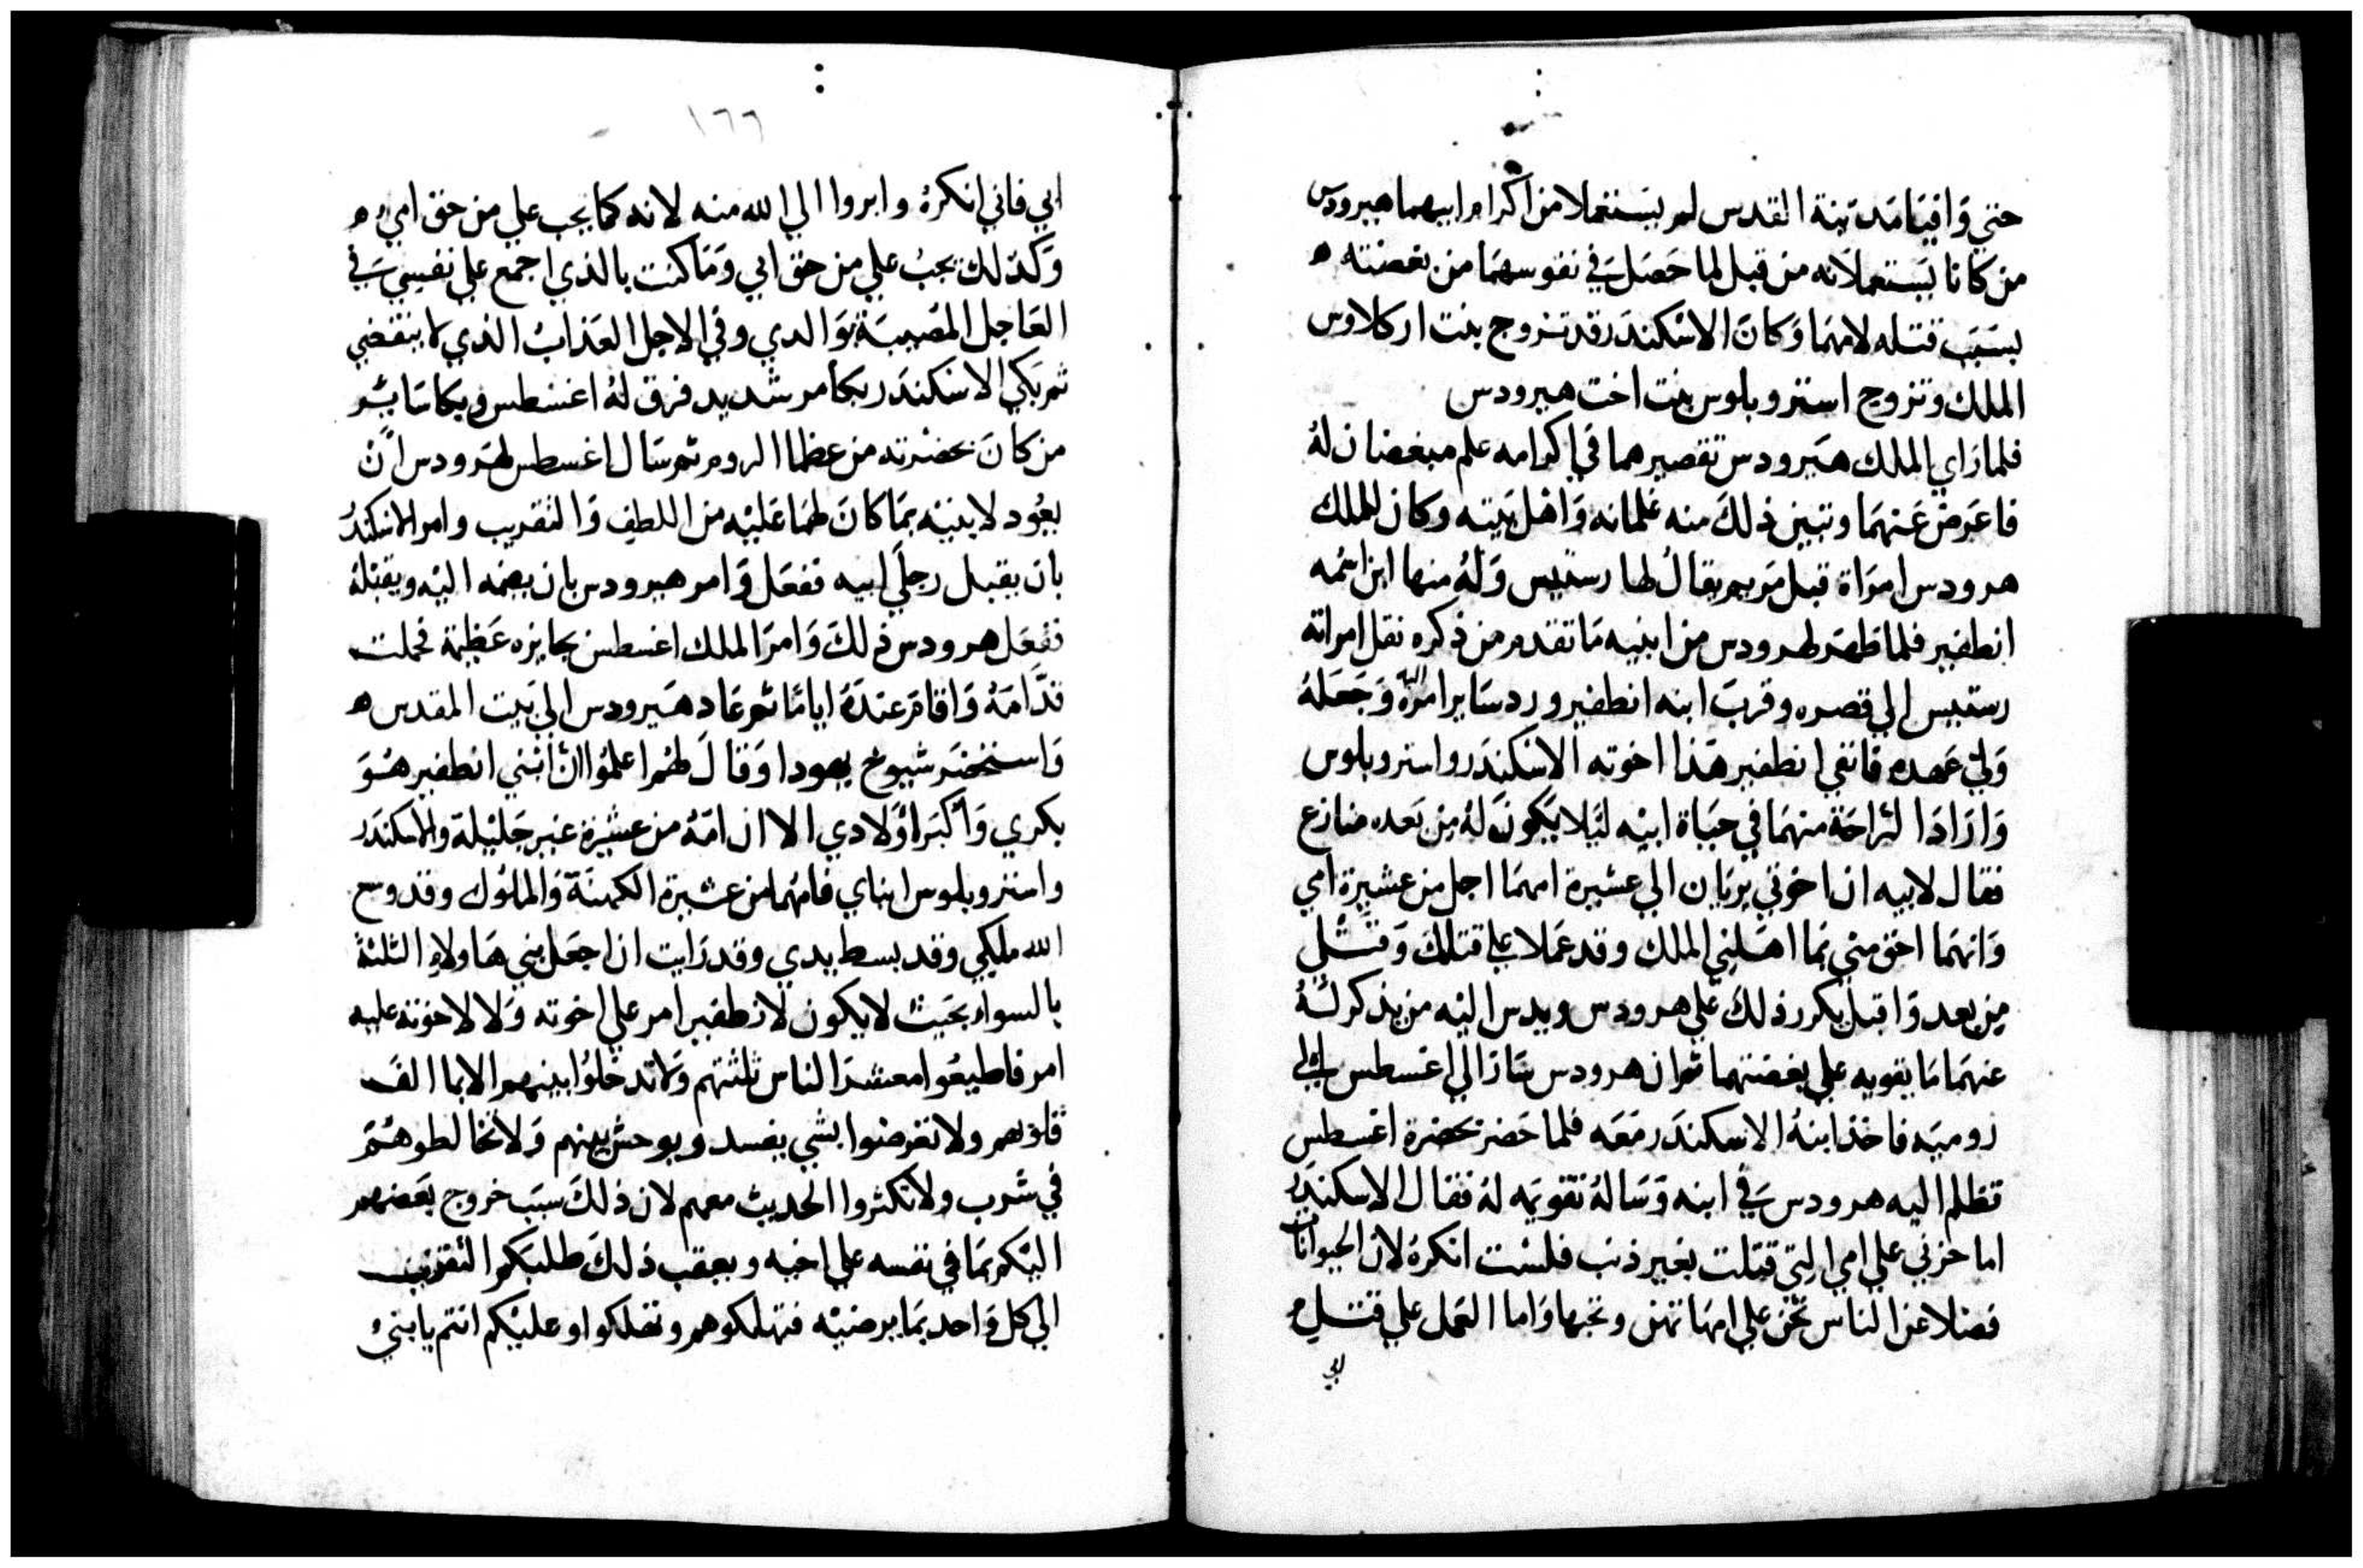 حتي وَافيَا مَدينة القدس لم يستعملا من اكرام ابيهما هيرودس
من كانا يَستعملانه من قبل لما حَصَل في نفوسهمَا من بغضته ه
بسَبَب قتله لامهمَا وَكانَ الاسْكندَر قد تزوج بنت اركلاوس
الملك وتزوج استروبلوس بنت اخت هيرودس
فلما رَاي الملك هيَرودس تقصيرهما في اكرامه علم مبغضان لهُ
فاعَرض عَنهمَا وتبين ذلكَ منه غلمانه وَاهْل بَيته وكان للملك
هرودس امرَاة قبل مَريم يقالُ لها رستيس وَلهُ منها ابن اسْمه
انطفير فلما ظهَر لهرودس من ابنيه مَا تقدم من ذكره نقل امراته
رستيس الي قصره وقربَ ابنه انطفير ورد سَاير امره اليه وَجَعَلهُ
وَليَّ عَهده فانفي انطفير هَذا اخوته الاسْكندَر واستروبلوس
وَارَادَا لرَاحَة منهمَا في حَيَاة ابيْه ليَلا يَكونَ لهُ مِن بَعده منازع
فقال لابيه ان اخوتي يريَان الي عشيرة امهمَا اجل من عشيرة امي
وَانهمَا احَق مني بمَا اهَلني الملك وقد عَملا علي قتلكَ وَقتْلي
مِن بعد وَاقبل يكرر ذلكَ عَلي هرودس ويدس اليْه من يذكر لهُ
عنهمَا مَا يقويه علي بغضتهما ثم ان هرودس سَارَ الي اغسطس الي
روميَه فاخذ ابنهُ الاسكندَر مَعَه فلما حَضر بحضرة اغسطس
تظلم اليه هرودس في ابنه وَسَالهُ تقويمَه لهُ فقال الاسكندَرُ
اما حزني علي امي التي قتلت بغير ذنب فلسْت انكرهُ لان الحيوانات
فضلا عن الناس تحن علي امهَاتهن وتحبها وَاما العَمل علي قتل
ابي
١٦٦
ابي فاني انكرهُ وابروا الي الله منه لانه كما يجب علي من حق امي ه
وَكذلك يجبُ علي من حق ابي وَمَا كنت بالذي اجمع علي نفسي في
العَاجل المصيبَة بوَالدي وفي الاجل العَذابُ الذي لا ينقضي
ثم بَكي الاسكندَر بكا مر شديد فرق لهُ اغسطس وبكا سَاير
من كانَ بحضرته من عظما الروم ثم سَال اغسطس لهرودس انْ
يعُود لابنيْه بمَا كانَ لهمَا عَليْه من اللطف وَالتقريب وامر الاسكندرُ
بان يقبل رجلَي ابيه ففعَل وَامر هيرودس بان يضمه اليْه ويقبْلهُ
ففعَل هرودس ذلكَ وَامرَ الملك اغسطس بجايزه عَظيمة فحملت
قدَّامَهُ وَاقامَ عندَهُ ايامًا ثم عَاد هيَرودس الي بَيت المقدس ه
وَاستحْضَر شيوخ يهودا وَقالَ لهُم اعلموا انَّ ابْني انطفير هوَ
بكري وَاكبَر اوْلادي الا ان امّهُ من عشيرة غير جَليْلة والاسكندَر
واستروبلوس ابناي فامّهما من عشيرة الكهنَة وَالملوك وقد وسع
الله ملكي وقد بسط يدي وقد رَايت ان اجعَل بني هَاولاءِ الثلثة
بالسواء بحَيث لا يكون لانطفير امر علي اخوته وَلا لاخوته عليه
امر فاطيعُوا معشرَ الناس ثلثتهم وَلا تدخلوُا بينهم الا بما الفَ
قلوبهم ولا تعرضوا بشي يفسد ويوحش بينهم وَلا تخالطوهُمَ
في شرب ولا تكثروا الحَديث معهم لان ذلكَ سبَب خروج بَعضهم
اليْكم بمَا في نفسه علي اخيه وبعقب ذلكَ طلبَكم التقرّب
الي كل وَاحد بمَا يرضيْه فتهلكوهم وتهلكوا وعليْكم انتم يا بني